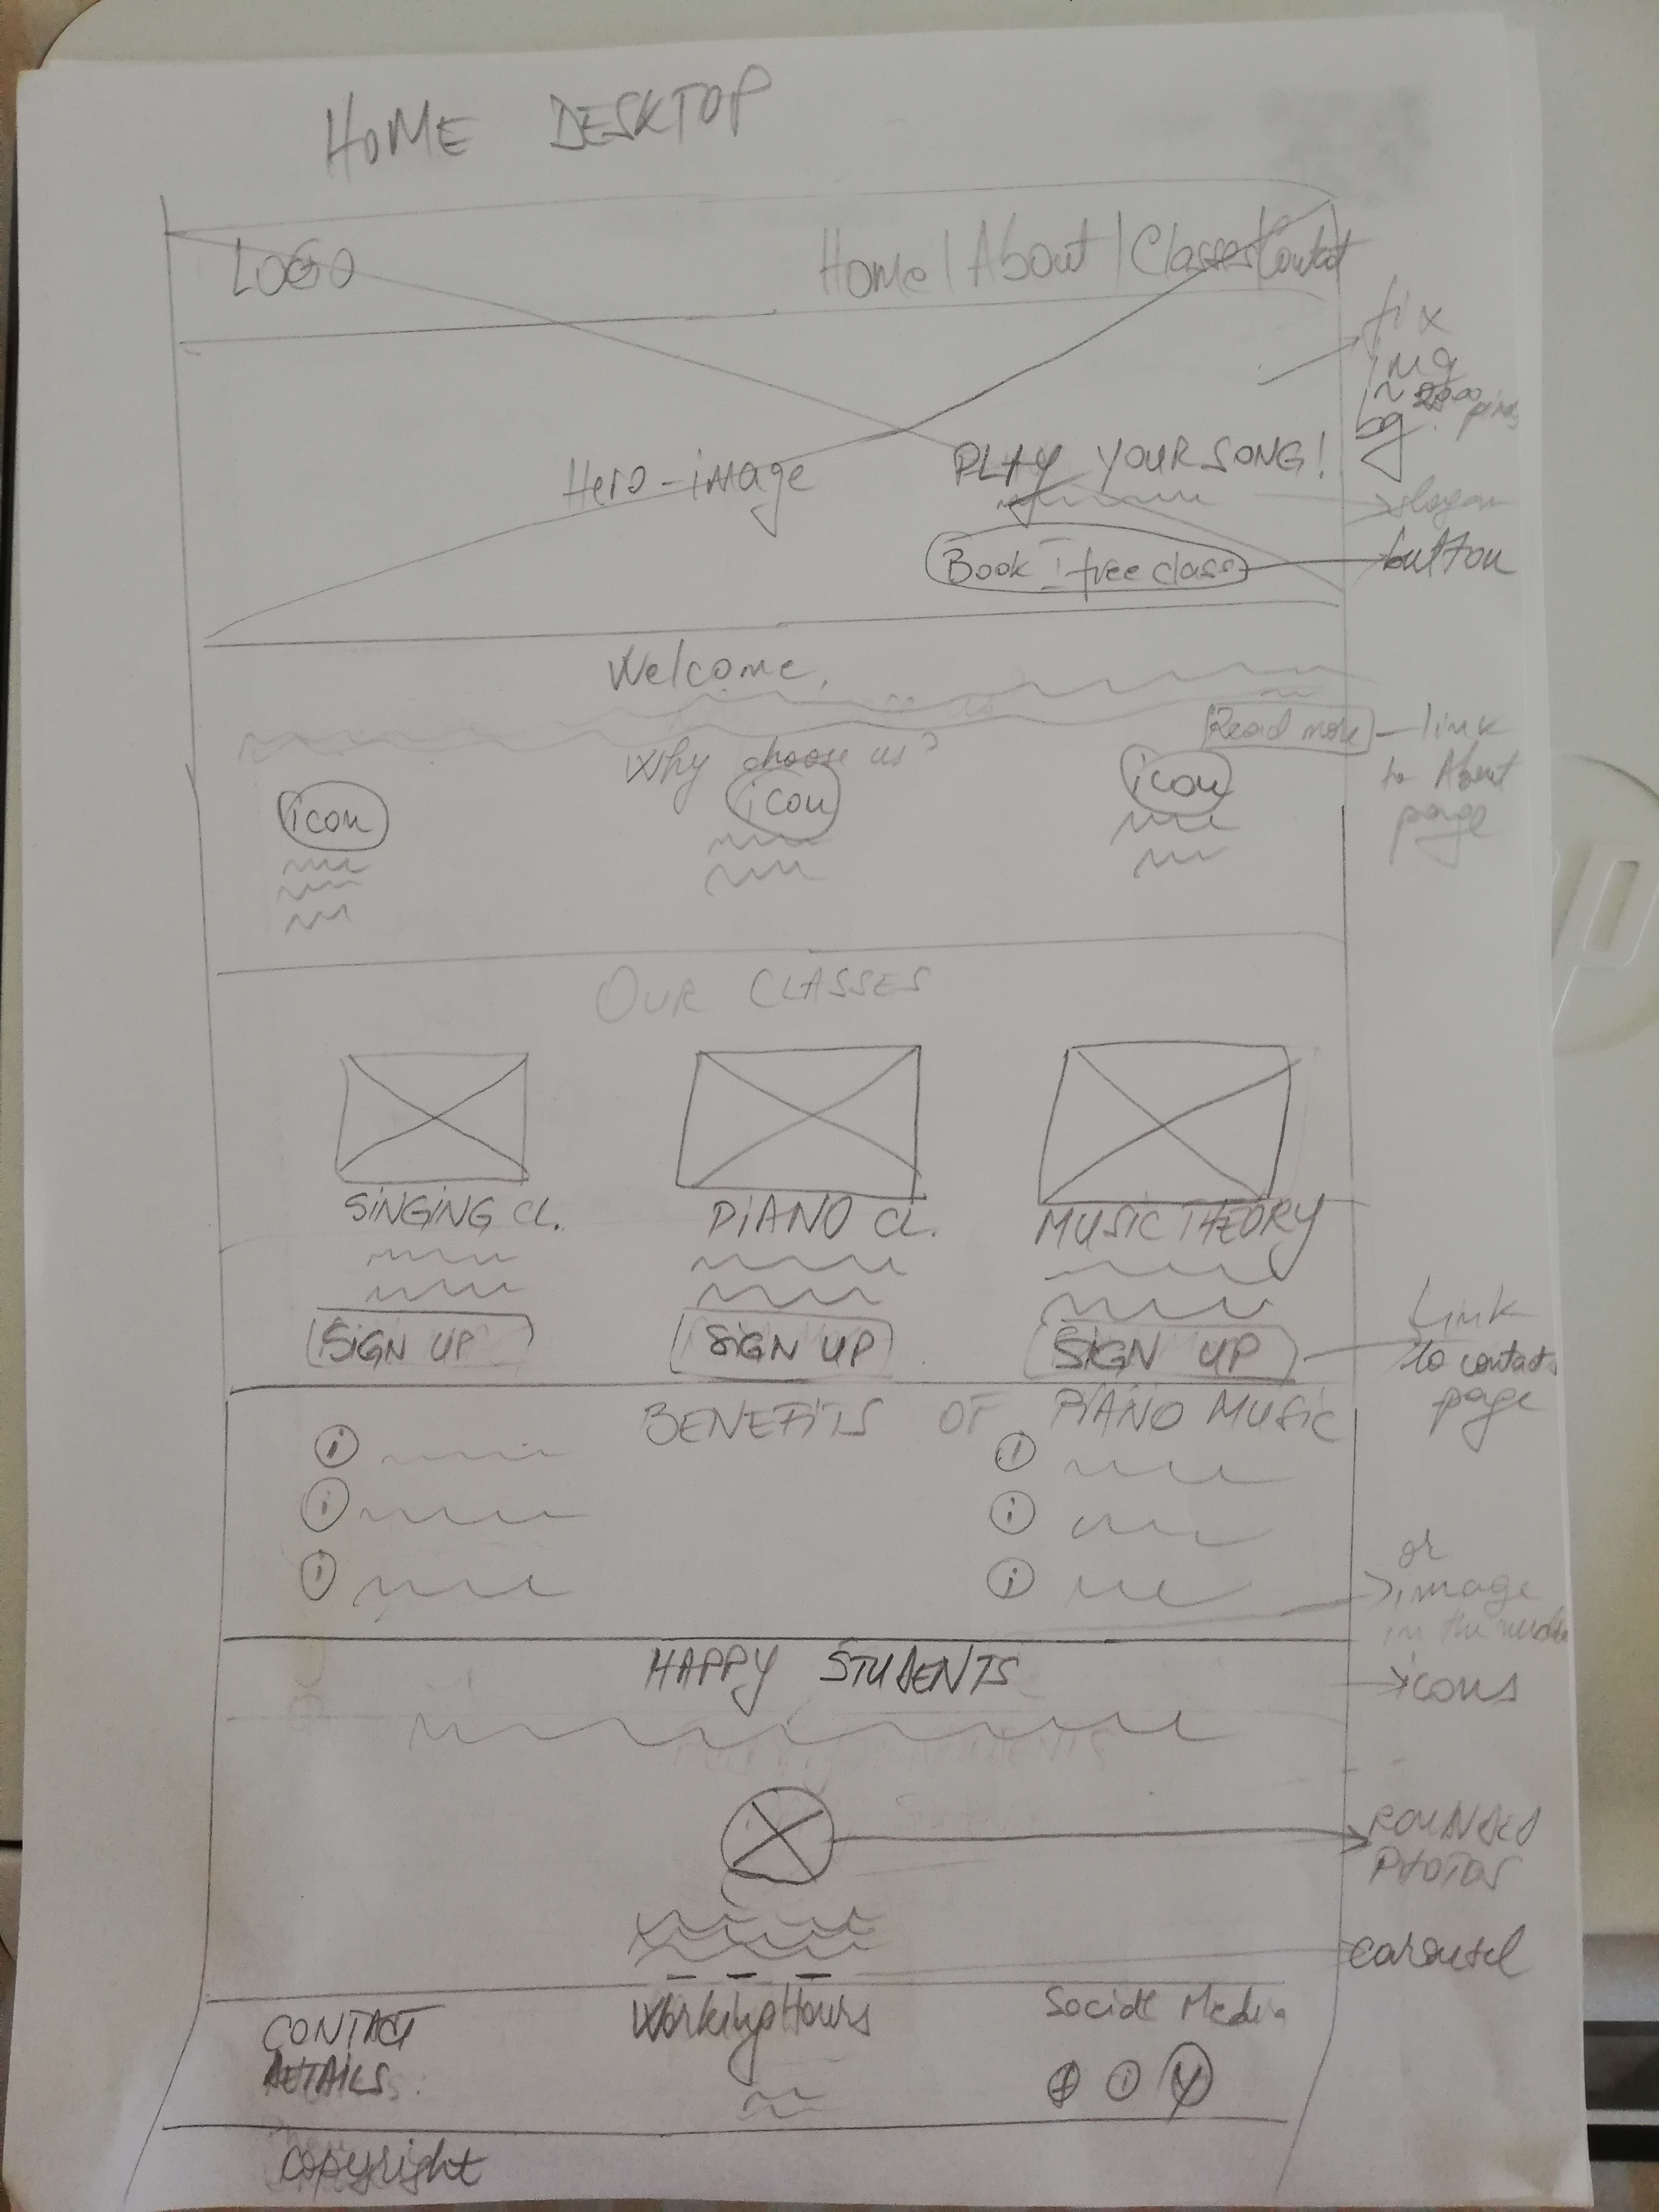 HOME DESKTOP
LOGO
Home | About | Classes | Contact
fix
img
~ 2000
bg
Hero-image
PLAY YOUR SONG!
slogan
Book 1 free class
button
Welcome,
Read more
link
to About
page
Why choose us?
icon
icon
icon
OUR CLASSES
SINGING CL.
PIANO CL.
MUSIC THEORY
SIGN UP
SIGN UP
SIGN UP
Link
to contacts
page
BENEFITS OF PIANO MUSIC
i
i
i
i
i
i
or
image
in the middle
icons
HAPPY STUDENTS
ROUNDED
PHOTOS
carousel
CONTACT
DETAILS:
Working Hours
Social Media
f
i
y
copyright